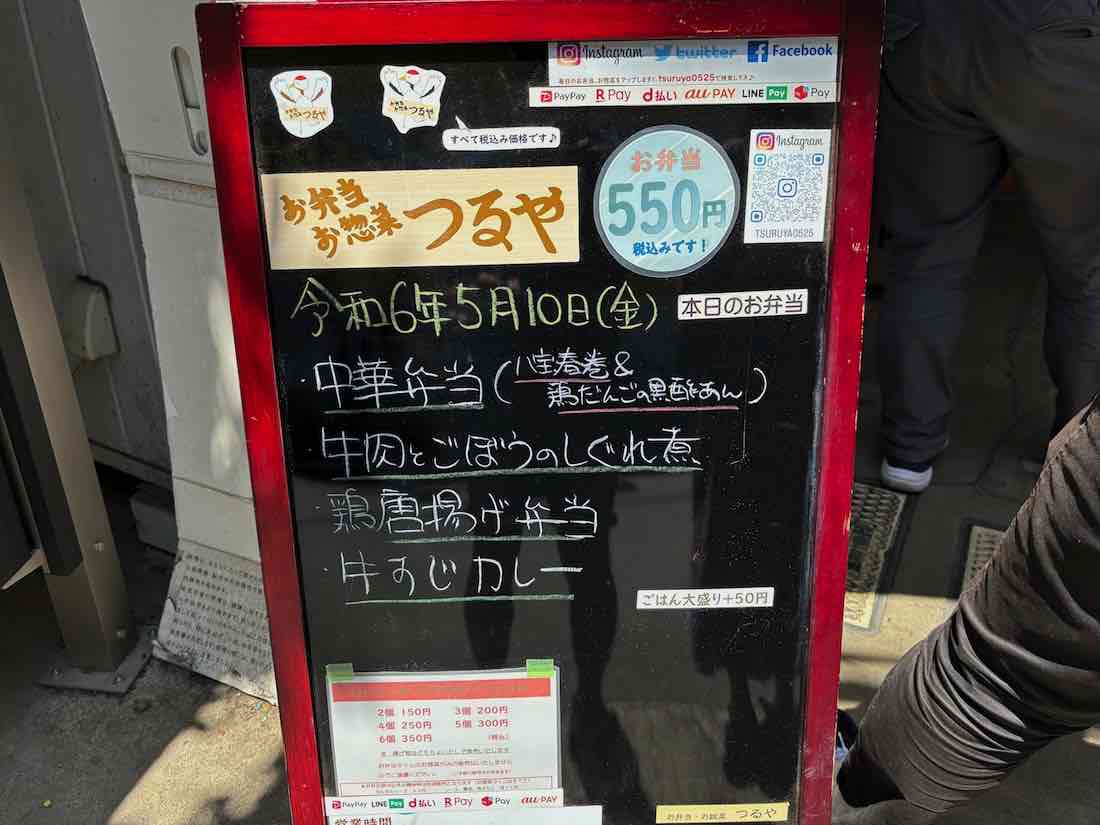 Instagram twitter Facebook
毎日のお弁当、お惣菜をアップします! tsuruya0525で検索して下さい♪
PayPay R Pay d払い au PAY LINE Pay Pay
つるや
つるや
すべて税込み価格です♪
お弁当
お惣菜
つるや
お弁当
550円
税込みです!
Instagram
TSURUYA0525
令和6年5月10日(金)
本日のお弁当
・中華弁当(八宝春巻&
鶏だんごの黒酢あん)
・牛肉とごぼうのしぐれ煮
・鶏唐揚げ弁当
・牛すじカレー
ごはん大盛り+50円
2個 150円 3個 200円
4個 250円 5個 300円
6個 350円 (税込)
PayPay LINE Pay d払い R Pay Pay au PAY
営業時間
お弁当・お惣菜 つるや